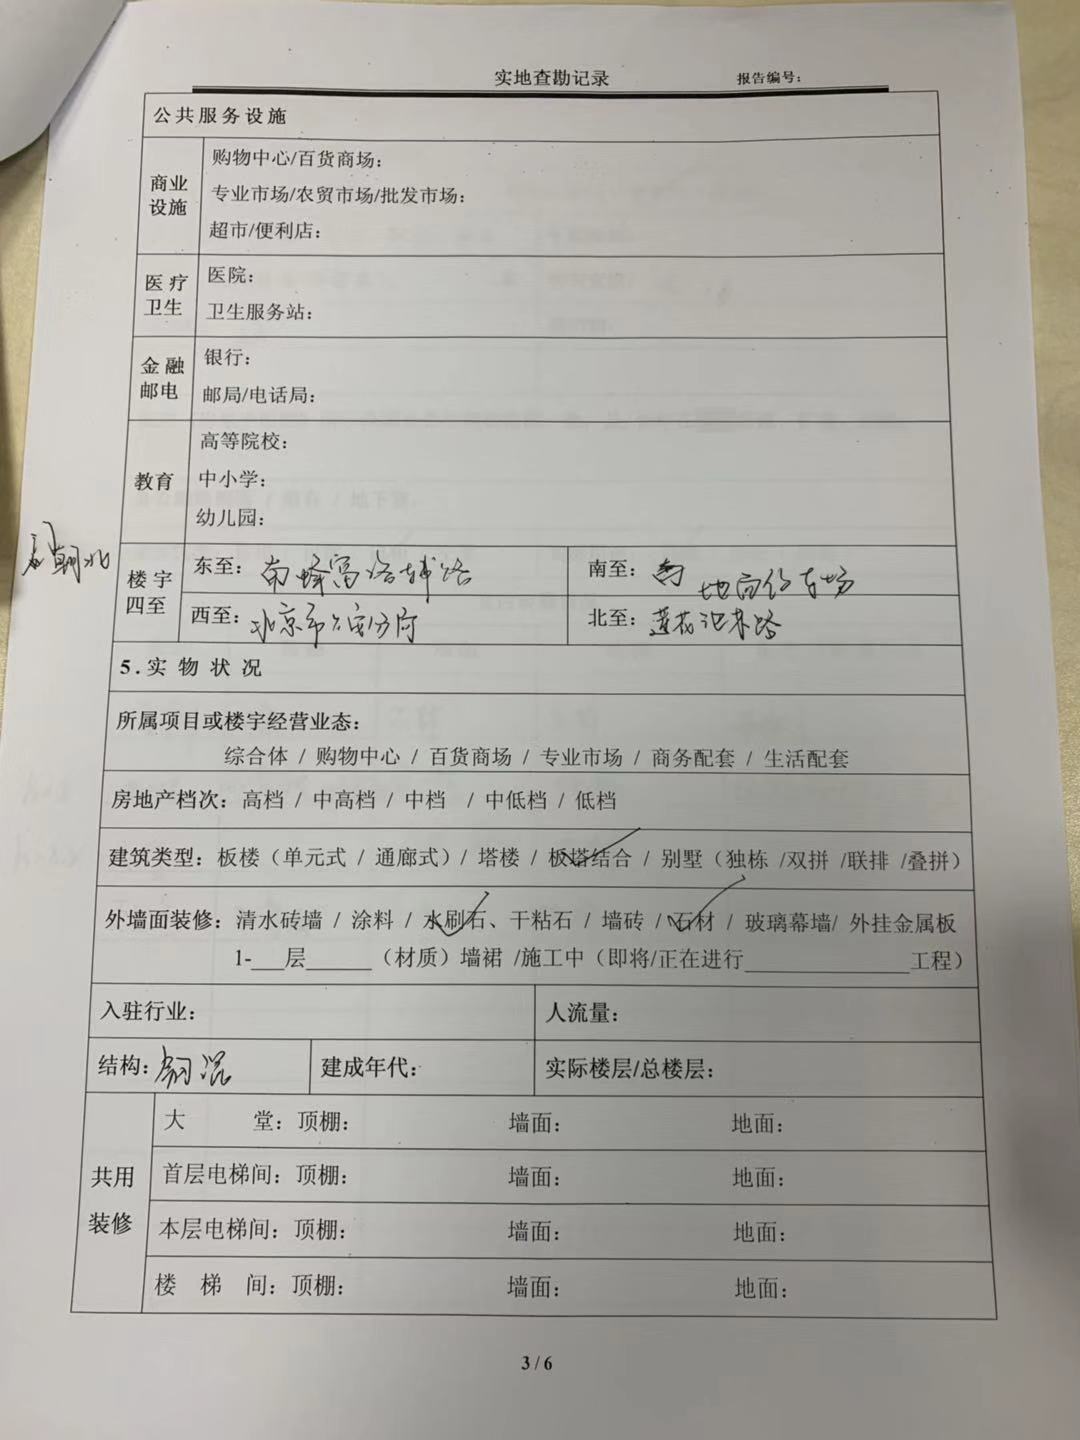 实地查勘记录 报告编号：
公共服务设施
商业设施
购物中心/百货商场：
专业市场/农贸市场/批发市场：
超市/便利店：
医疗卫生
医院：
卫生服务站：
金融邮电
银行：
邮局/电话局：
教育
高等院校：
中小学：
幼儿园：
朝北
楼宇四至
东至：南蜂窝路辅路
南至：地面停车场
西至：北京市公安分局
北至：莲花池东路
5.实物状况
所属项目或楼宇经营业态：
综合体 / 购物中心 / 百货商场 / 专业市场 / 商务配套 / 生活配套
房地产档次：高档 / 中高档 / 中档 / 中低档 / 低档
建筑类型：板楼（单元式 / 通廊式）/ 塔楼 / 板塔结合 / 别墅（独栋 /双拼 /联排 /叠拼）
外墙面装修：清水砖墙 / 涂料 / 水刷石、干粘石 / 墙砖 / 石材 / 玻璃幕墙/ 外挂金属板
1-___层______（材质）墙裙 /施工中（即将/正在进行_______________工程）
入驻行业： 人流量：
结构：钢混 建成年代： 实际楼层/总楼层：
共用装修
大堂：顶棚： 墙面： 地面：
首层电梯间：顶棚： 墙面： 地面：
本层电梯间：顶棚： 墙面： 地面：
楼梯间：顶棚： 墙面： 地面：
3 / 6